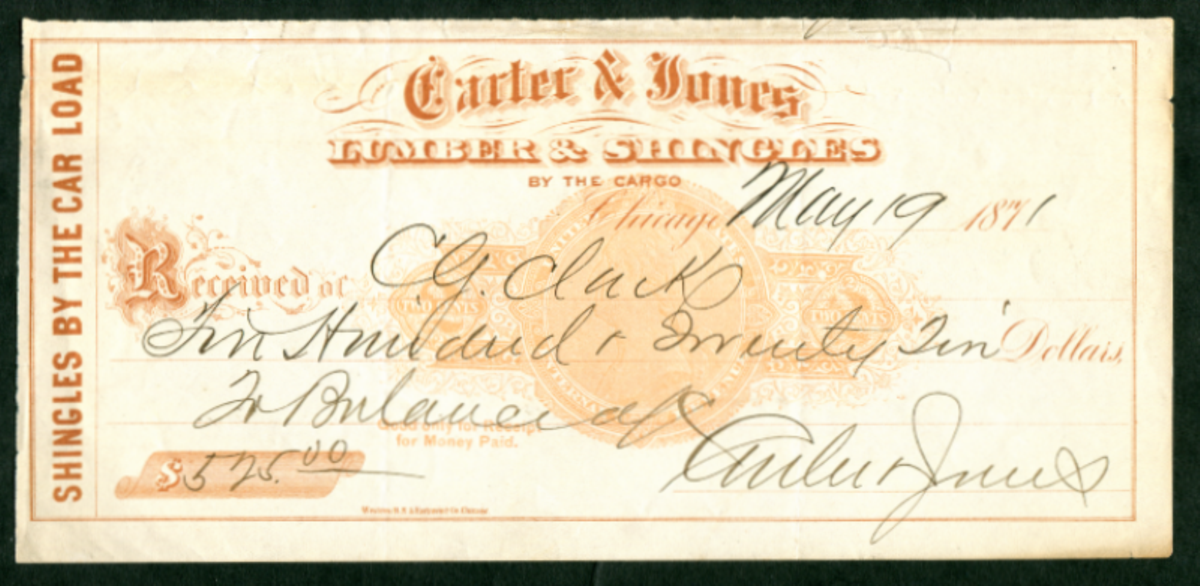 SHINGLES BY THE CAR LOAD
Carter & Jones
LUMBER & SHINGLES
BY THE CARGO
Chicago May 19 1871
Received of C.G. Clark
Five Hundred & Twenty Five Dollars,
To Balance a/c
Good only for Receipt
for Money Paid.
$525.00
Carter & Jones
TWO CENTS
TWO CENTS